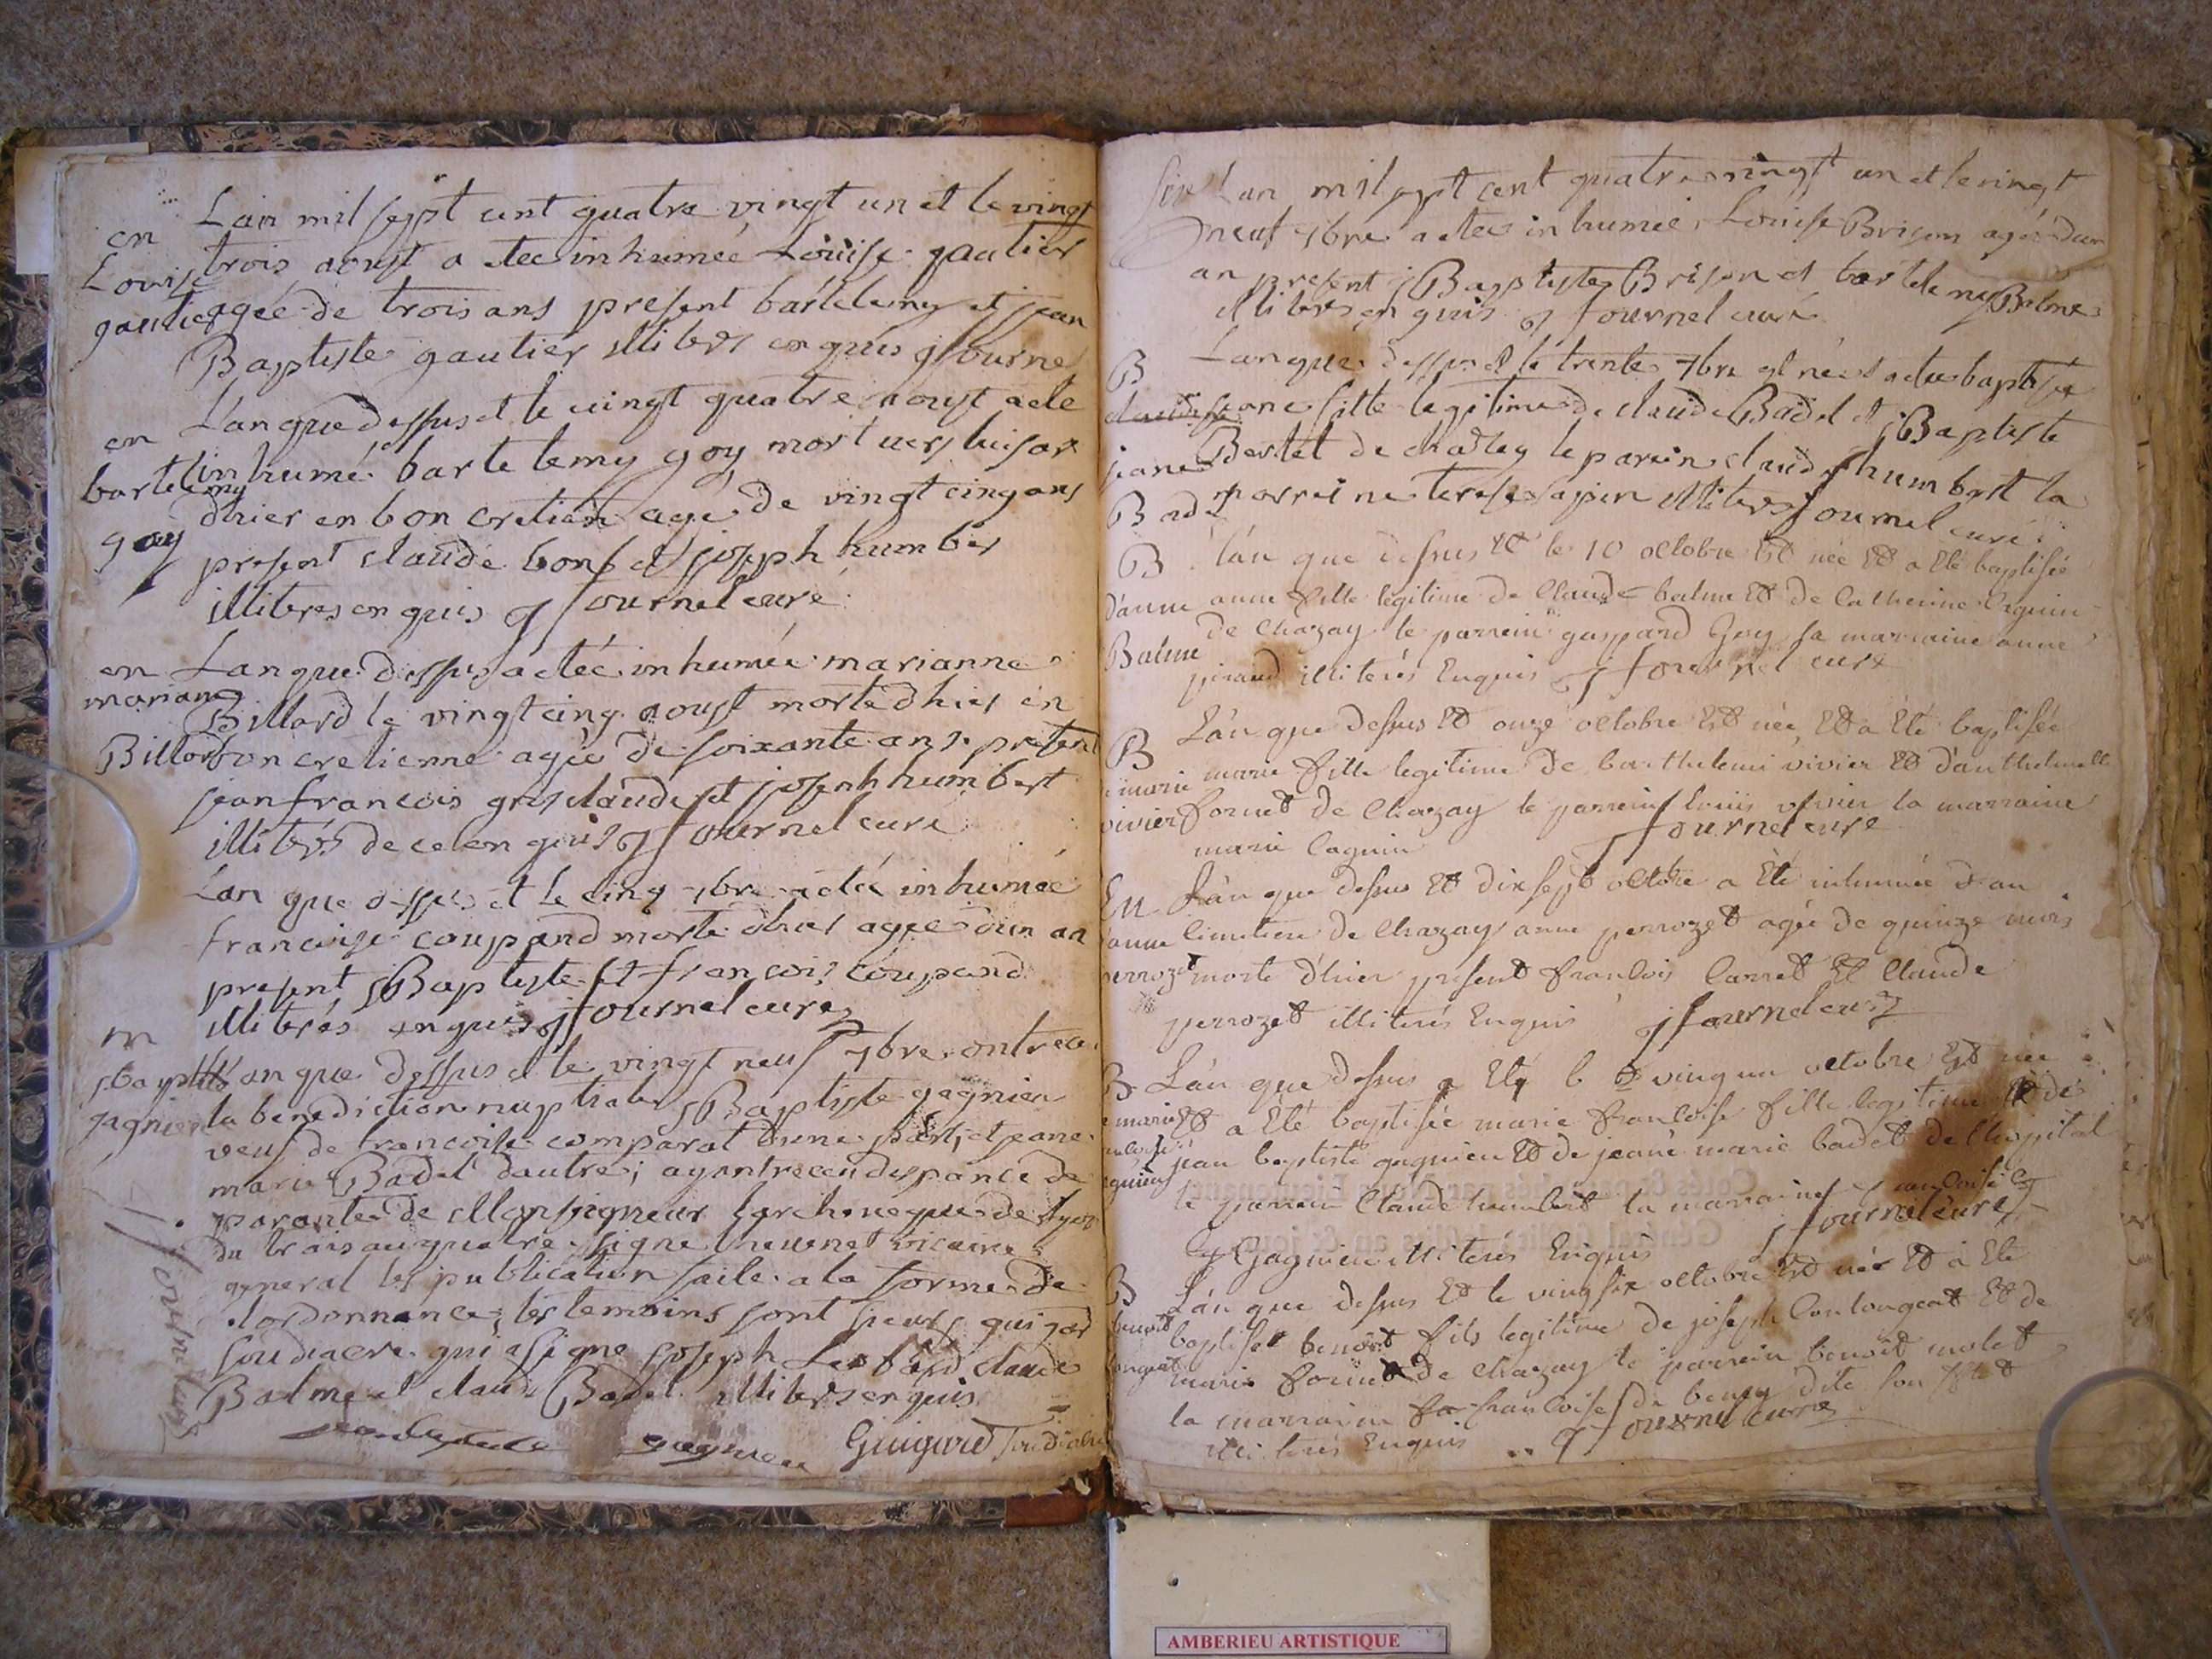 Lan mil sept cent quatre vingt un et le vingt
en
trois aoust a etee inhumée Louise gautier
Louise
gautier agée de trois ans present bartelemy et jean
Baptiste gautier illiteres enquis j fournel
Lan que dessus et le vingt quatre aoust a ete
en
inhumé bartelemy goy mort vers luisar
bartelemy
dhier en bon cretien agé de vingt cinq ans
goy
present claude bons et joseph humber
illiteres enquis j fournel curé
en Lan que dessus a etée inhumée marianne
mariane
Billard le vingt cinq aoust morte dhier en
Billard bon cretienne agée de soixante ans present
jean francois gros claude et joseph humbert
illiteres de ce enquis j fournel curé
Lan que dessus et le cinq 7bre a eteé inhumée
francoise coupand morte dhier agée dun an
present jBaptiste et francois coupand
illiterés enquis j fournel cure
m
jbaptiste Lan que dessus et le vingt neuf 7bre ont recu
gagnieu la benediction nuptiale jBaptiste gagnieu
veuf de francoise comparat dune part, et jeane
marie Badel dautre; ayant receu dispance de
parante de Monseigneur larcheveque de lyon
du trois au quatre signe vicaire
general les publication faite a la forme de
lordonnance, les temoins sont sieurs guigard
soudiacre qui a signe joseph claude
Balme et claude Badel illiteres enquis
j fournel curé
jean baptiste gagnieu Guigard soudiacre
Lan mil sept cent quatre vingt un et le vingt
neuf 7bre a etee inhumée Louise Brison agée dun
an present jBaptiste Brison et bartelemy Balme
illiteres enquis j fournel curé
B Lan que dessus et le trente 7bre est née et a etee baptisée
claudine jeane fille legitime de claude Badel et jBaptiste
jeane Bertet de chazey le parein claude humbert la
Badel marreine terese sapin illiteres j fournel curé
B l'an que dessus Et le 10 octobre Est née Et a Eté baptisée
d'anne anne fille legitime de Claude balme Et de Catherine Caguin
Balme de Chazay le parrein gaspard Goy la marraine anne
piraud illiterés Enquis j fournel curé
B L'an que dessus Et onze octobre Est née Et a Eté baptisée
marie marie fille legitime de barthelemi vivier Et d'anthelmette
vivier fornet de Chazay le parrein louis vivier la marraine
marie Caguin j fournel curé
En L'an que dessus Et dix sept octobre a Eté inhumée dan
anne Cimetiere de Chazay anne perrozet agée de quinze mois
perrozet morte d'hier present francois Carret Et Claude
perrozet illiterés Enquis j fournel curé
B L'an que dessus a Eté le vingt un octobre Est née
marie Et a Eté baptisée marie francoise fille legitime de
jean baptiste gagnieu Et de jeane marie badet de l'hospital
gagnieu le parrein Claude humbert la marraine francoise
Gagnieu illiterés Enquis j fournel curé
B L'an que dessus Et le vingt six octobre Est née Et a Eté
benoit baptisé benoit fils legitime de joseph Conlongeat Et de
marie fornet de Chazay le parrein benoit molet
la marraine francoise de bens
illiterés Enquis j fournel curé
AMBERIEU ARTISTIQUE